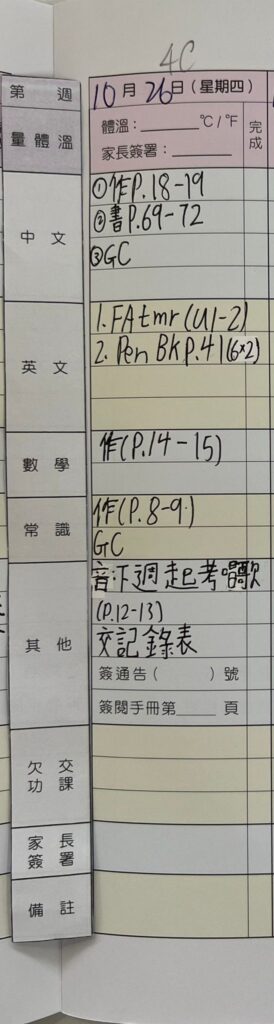 4C
第 週
10月26日(星期四)
量體溫
體溫：______°C/°F
家長簽署：______
完成
中文
①作P.18-19
②書P.69-72
③GC
英文
1. FA tmr (U1-2)
2. Pen BK P.41(6×2)
數學
作(P.14-15)
常識
作(P.8-9)
GC
其他
音:下週起考唱歌
(P.12-13)
交記錄表
簽通告(　　)號
簽閱手冊第____頁
欠交
功課
家長
簽署
備註